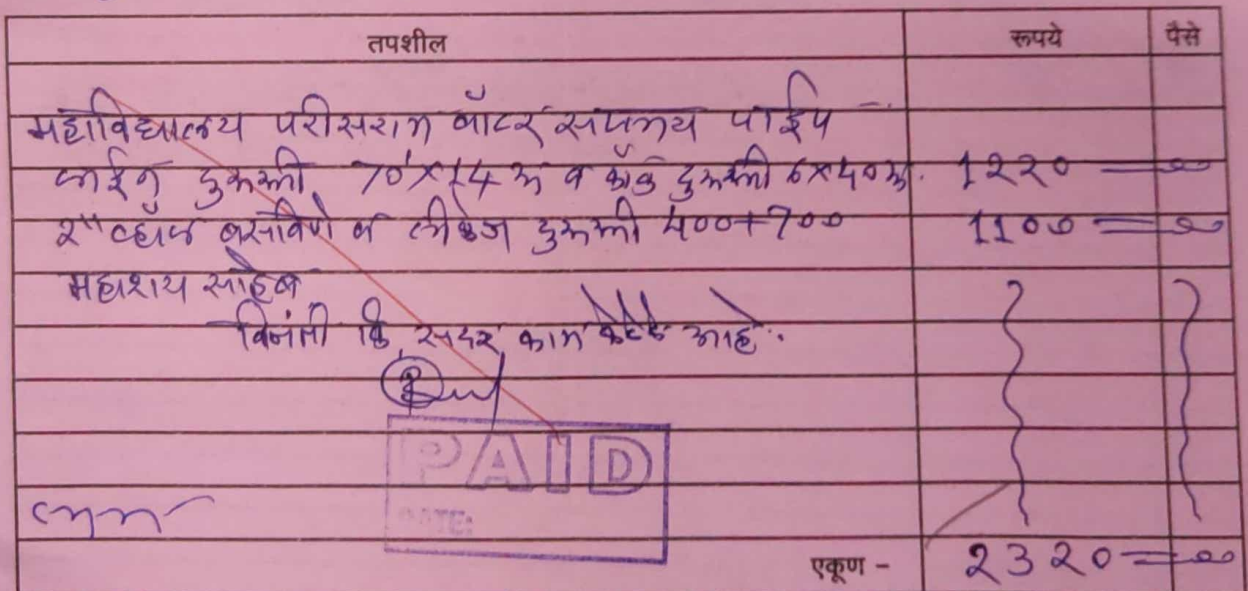 तपशील रूपये पैसे
महाविद्यालय परीसरात वॉटर सप्लाय पाईप
लाईन दुरूस्ती 70'×14 रू व कॉक दुरूस्ती 6×40रू. 1220 =00
2" व्हॉल्व बसविणे व लीकेज दुरूस्ती 400+700 1100 =00
महाशय साहेब
विनंती कि सदर काम केलेले आहे.
PAID
DATE:
एकूण - 2320=00